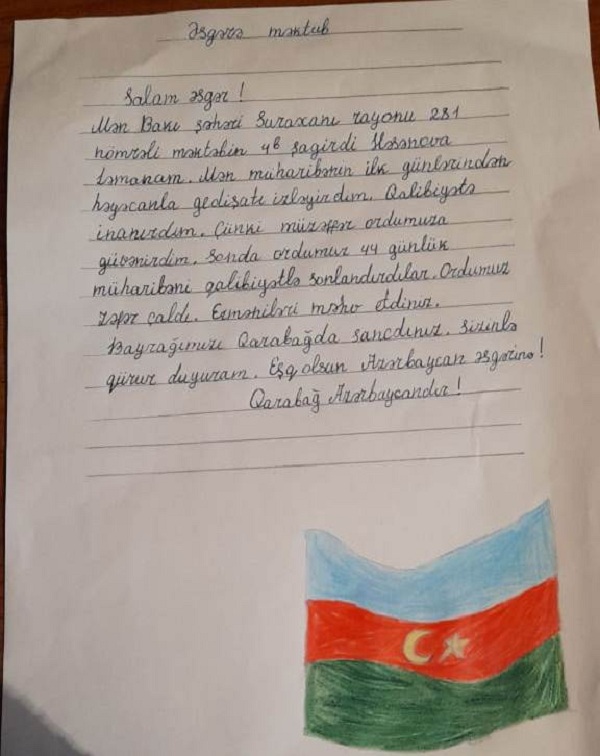 Əsgərə məktub
Salam əsgər !
Mən Bakı şəhəri Suraxanı rayonu 281
nömrəli məktəbin 4б şagirdi Həsənova
Səmanəm. Mən müharibənin ilk günlərindən
həyəcanla gedişatı izləyirdim. Qalibiyətə
inanırdım. Çünki müzəffər ordumuza
güvənirdim. Sonda ordumuz 44 günlük
müharibəni qalibiyətlə sonlandırdılar. Ordumuz
zəfər çaldı. Erməniləri məhv etdiniz.
Bayrağımızı Qarabağda sancdınız. Sizinlə
qürur duyuram. Eşq olsun Azərbaycan əsgərinə !
Qarabağ Azərbaycandır !